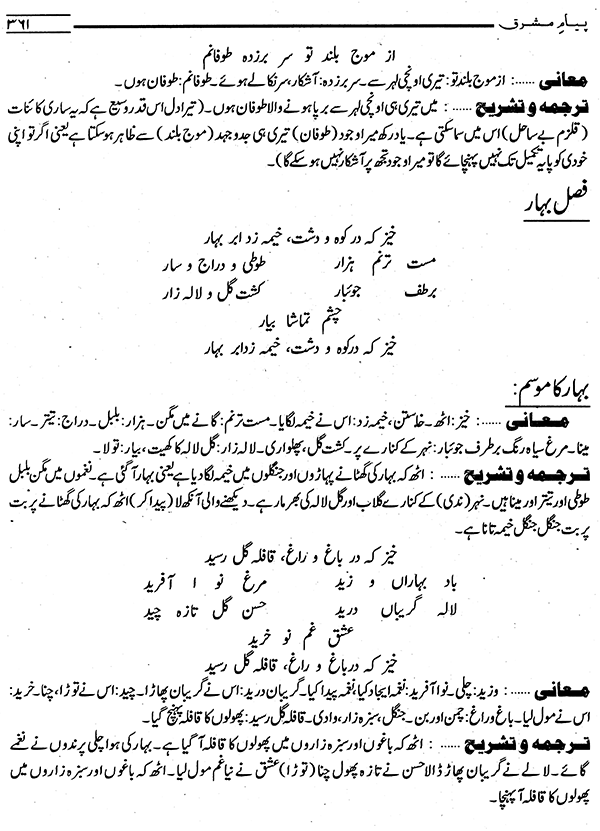 پیامِ مشرق ۳۶۱
از موج بلند تو سر برزدہ طوفانم
معانی ......: از موج بلند تو: تیری اونچی لہر سے۔ سر برزدہ: آشکار، سر نکالے ہوئے۔ طوفانم: طوفان ہوں۔
ترجمہ و تشریح ......: میں تیری ہی اونچی لہر سے برپا ہونے والا طوفان ہوں۔ (تیرا دل اس قدر وسیع ہے کہ یہ ساری کائنات
(قلزم بے ساحل) اس میں سما سکتی ہے۔ یاد رکھ میرا وجود (طوفان) تیری ہی جدوجہد (موج بلند) سے ظاہر ہو سکتا ہے یعنی اگر تو اپنی
خودی کو پایہ تکمیل تک نہیں پہنچائے گا تو میرا وجود تجھ پر آشکار نہیں ہو سکے گا)۔
فصل بہار
خیز کہ در کوہ و دشت، خیمہ زد ابر بہار
مست ترنم ہزار طوطی و دراج و سار
برطف جوئبار کشت گل و لالہ زار
چشم تماشا بیار
خیز کہ در کوہ و دشت، خیمہ زد ابر بہار
بہار کا موسم:
معانی ......: خیز: اٹھ۔ خاستن، خیمہ زد: اس نے خیمہ لگایا۔ مست ترنم: گانے میں مگن۔ ہزار: بلبل۔ دراج: تیتر۔ سار:
مینا۔ مرغ سیاہ رنگ برطرف جوئبار: نہر کے کنارے پر۔ کشت گل، پھلواری۔ لالہ زار: گل لالہ کا کھیت، بیار: تو لا۔
ترجمہ و تشریح ......: اٹھ کہ بہار کی گھٹا نے پہاڑوں اور جنگلوں میں خیمہ لگا دیا ہے یعنی بہار آ گئی ہے۔ نغموں میں مگن بلبل
طوطی اور تیتر اور مینا ہیں۔ نہر (ندی) کے کنارے گلاب اور گل لالہ کی بھرمار ہے۔ دیکھنے والی آنکھ لا (پیدا کر) اٹھ کہ بہار کی گھٹا نے پربت
پربت جنگل جنگل خیمہ تانا ہے۔
خیز کہ در باغ و راغ، قافلہ گل رسید
باد بہاراں و زید مرغ نو ا آفرید
لالہ گریباں درید حسن گل تازہ چید
عشق غم نو خرید
خیز کہ در باغ و راغ، قافلہ گل رسید
معانی ......: وزید: چلی۔ نوا آفرید: نغمہ ایجاد کیا، نغمہ پیدا کیا۔ گریبان درید: اس نے گریبان پھاڑا۔ چید: اس نے توڑا، چنا۔ خرید:
اس نے مول لیا۔ باغ و راغ: چمن اور بن۔ جنگل، سبزہ زار، وادی۔ قافلہ گل رسید: پھولوں کا قافلہ پہنچ گیا۔
ترجمہ و تشریح ......: اٹھ کہ باغوں اور سبزہ زاروں میں پھولوں کا قافلہ آ گیا ہے۔ بہار کی ہوا چلی پرندوں نے نغمے
گائے۔ لالے نے گریبان پھاڑ ڈالا حسن نے تازہ پھول چنا (توڑا) عشق نے نیا غم مول لیا۔ اٹھ کہ باغوں اور سبزہ زاروں میں
پھولوں کا قافلہ آ پہنچا۔